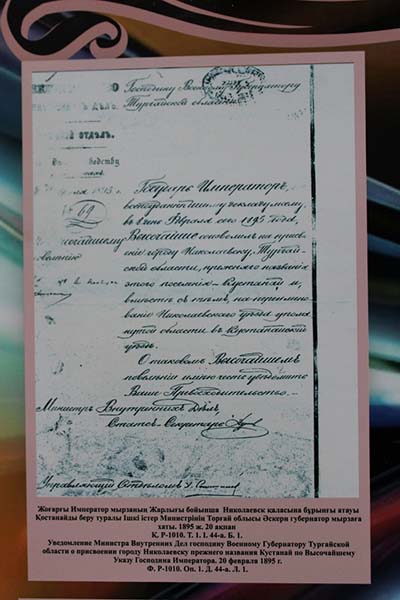 Господину Военному Губернатору
Тургайской области.
ОТДѢЛЪ.
69
Государь Императоръ,
всеподданнѣйшему докладу моему,
въ 8 день Февраля сего 1895 года,
Высочайше соизволилъ на присвое-
ніе городу Николаевску, Тургай-
ской области, прежняго названія
этого поселенія – Кустанай и,
вмѣстѣ съ тѣмъ, на переимено-
ваніе Николаевскаго уѣзда упомя-
нутой области въ Кустанайскій
уѣздъ.
О таковомъ Высочайшемъ
повелѣніи имѣю честь увѣдомить
Ваше Превосходительство.
Министръ Внутреннихъ Дѣлъ,
Статсъ-Секретарь
Управляющій Отдѣломъ
Жоғарғы Император мырзаның Жарлығы бойынша Николаевск қаласына бұрынғы атауы
Қостанайды беру туралы Ішкі істер Министрінің Торғай облысы Әскери губернатор мырзаға
хаты. 1895 ж. 20 ақпан
Қ. Р-1010. Т. 1. І. 44-а. Б. 1.
Уведомление Министра Внутренних Дел господину Военному Губернатору Тургайской
области о присвоении городу Николаевску прежнего названия Кустанай по Высочайшему
Указу Господина Императора. 20 февраля 1895 г.
Ф. Р-1010. Оп. 1. Д. 44-а. Л. 1.